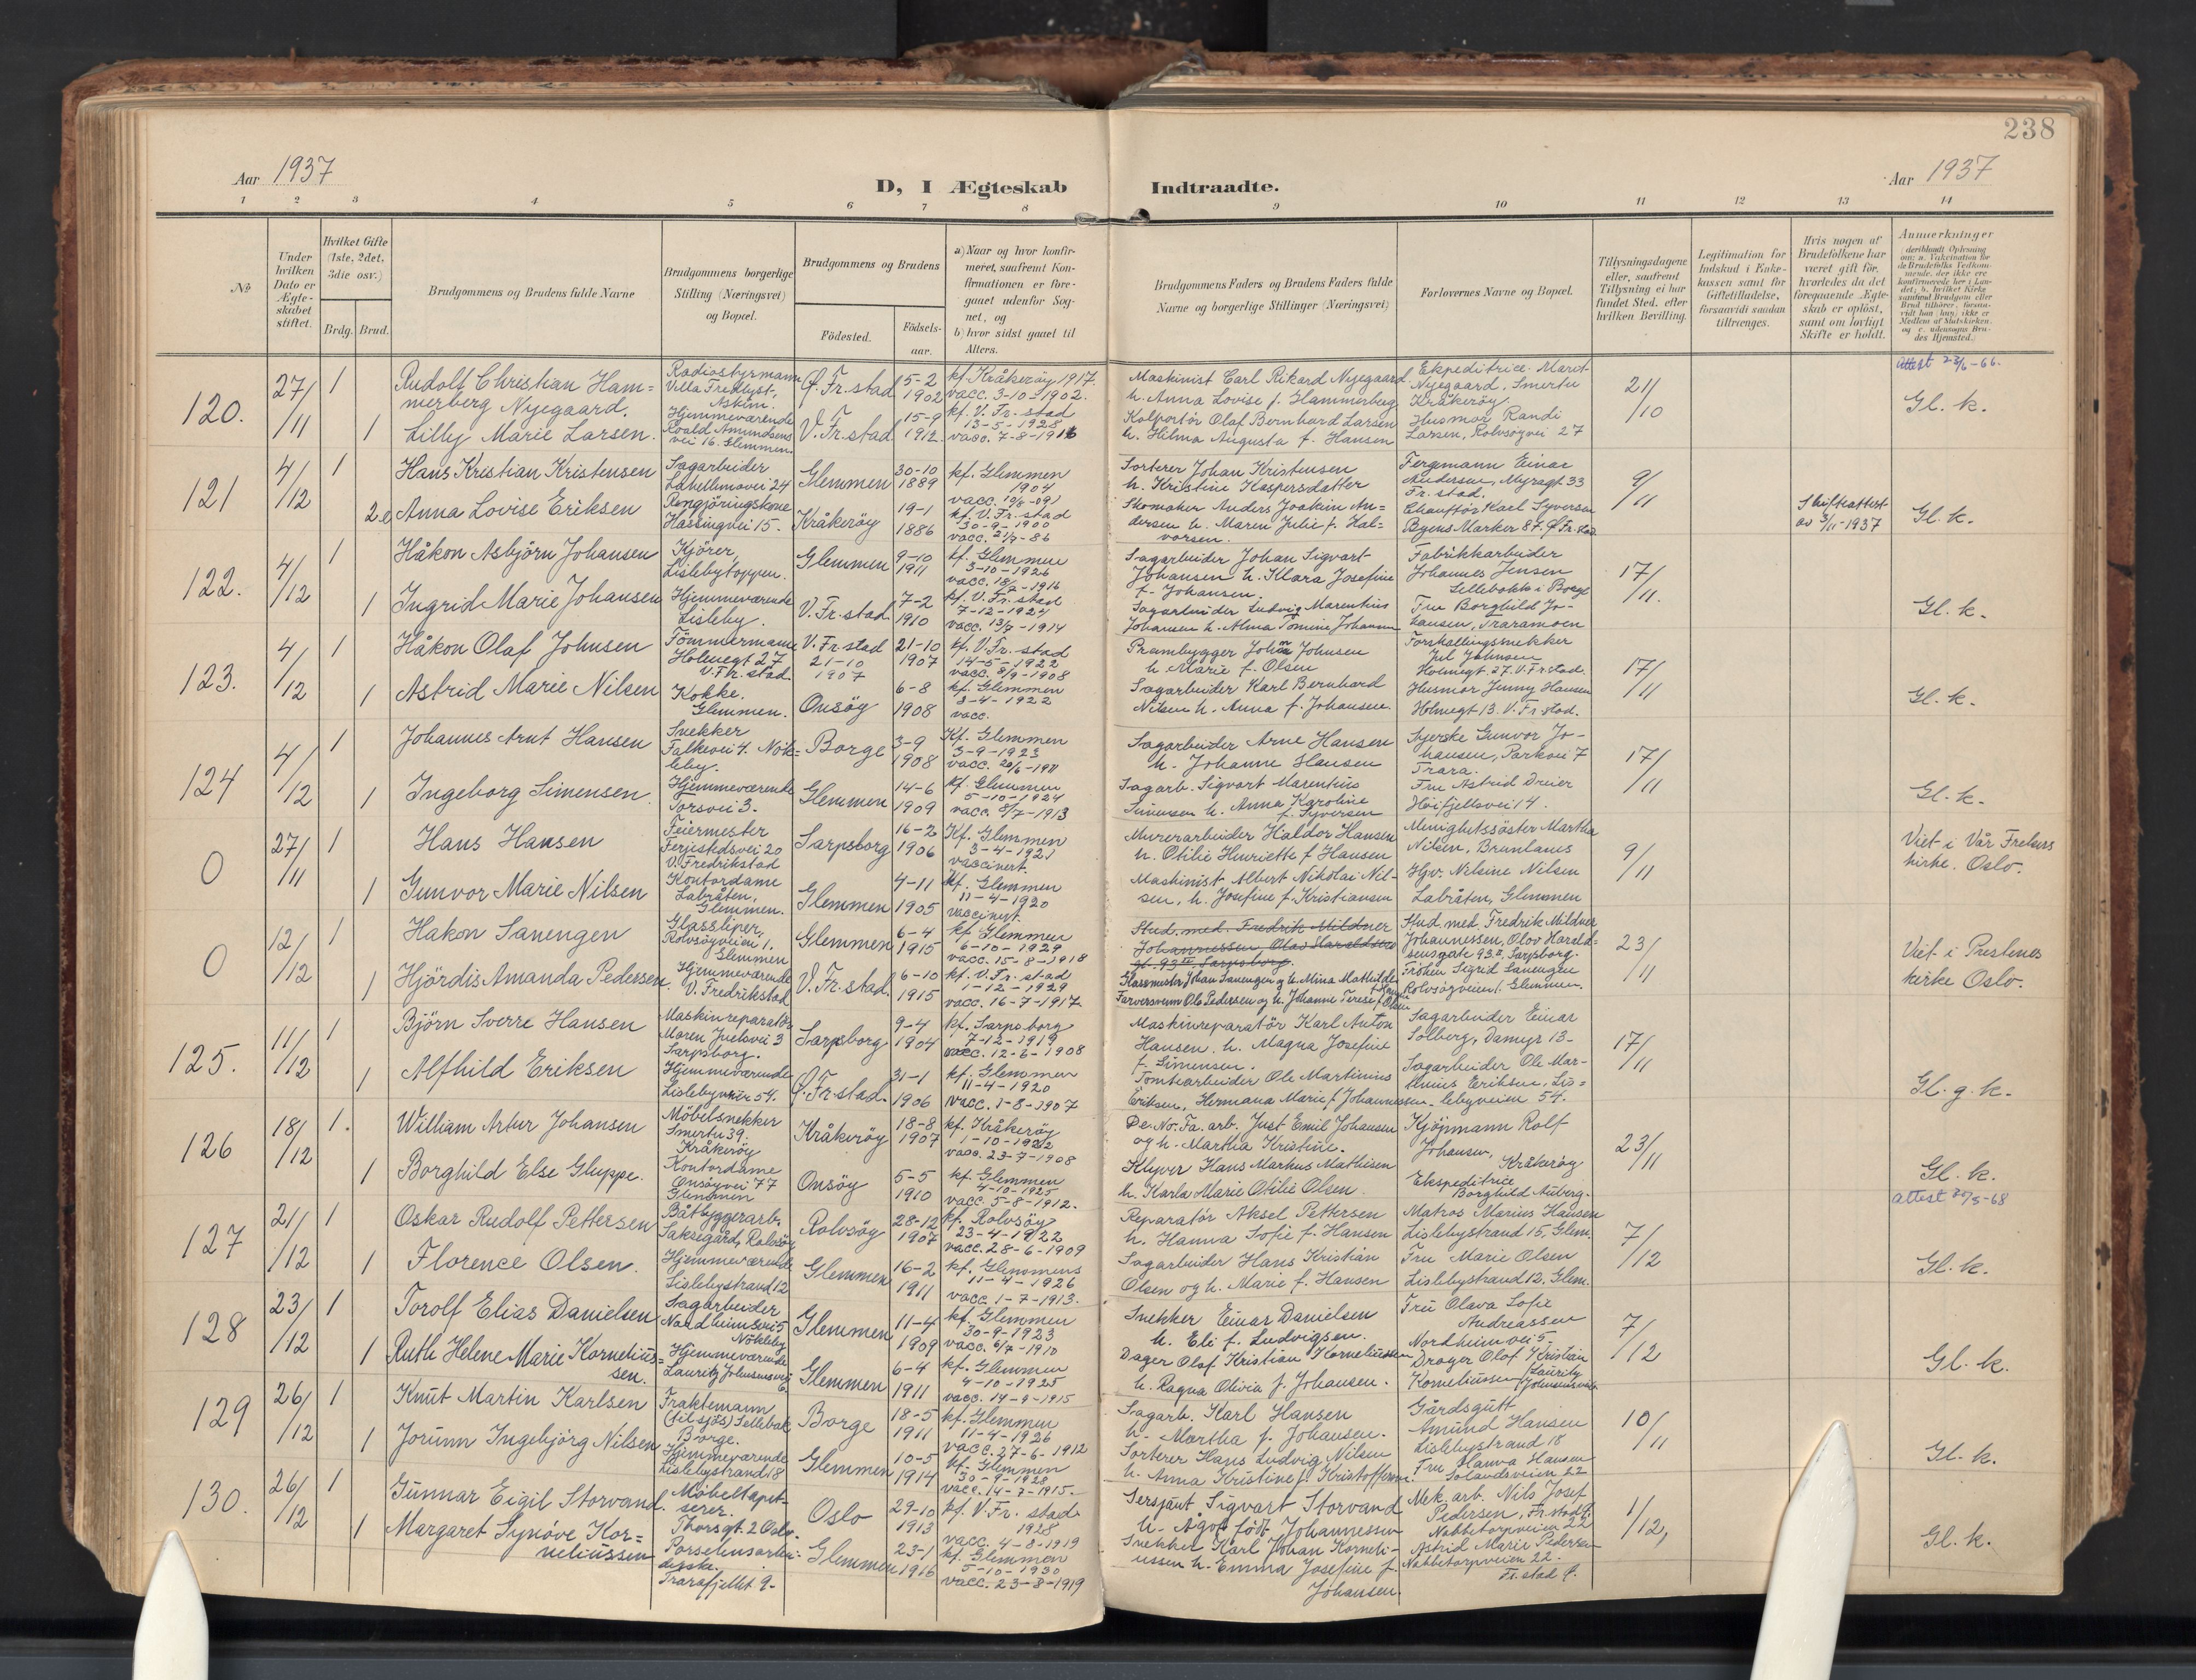 238
Aar 1937
D, I Ægteskab Indtraadte.
Aar 1937
1 2 3 4 5 6 7 8 9 10 11 12 13 14
No
Under hvilken Dato er Ægteskabet stiftet.
Hvilket Gifte (1ste, 2det, 3die osv.)
Brdg. Brud.
Brudgommens og Brudens fulde Navne
Brudgommens borgerlige Stilling (Næringsvei) og Bopæl.
Brudgommens og Brudens
Födested.
Födsels-aar.
a) Naar og hvor konfirmeret, saafremt Konfirmationen er foregaaet udenfor Sognet, og
b) hvor sidst gaaet til Alters.
Brudgommens Faders og Brudens Faders fulde Navne og borgerlige Stillinger (Næringsvei)
Forlovernes Navne og Bopæl.
Tillysningsdagene eller, saafremt Tillysning ei har fundet Sted, efter hvilken Bevilling.
Legitimation for Indskud i Enkekassen samt for Giftetilladelse, forsaavidt saadan tiltrænges.
Hvis nogen af Brudefolkene har været gift för, hvorledes da det foregaaende Ægteskab er oplöst, samt om lovligt Skifte er holdt.
Anmerkninger
120.
27/11
1
Rudolf Christian Ham=
merberg Nyegaard.
Radiostyrmann
Villa Fredlyst,
Askim.
Ø. Fr. stad
5-2
1902
kf. Kråkerøy 1917.
vacc. 3-10-1902.
Maskinist Carl Rikard Nyegaard
h. Anna Lovise f. Hammerberg
Ekspeditrice Marit
Nyegaard, Smertu
Kråkerøy
21/10
Attest 23/6-66.
Gl. k.
1
Lilly Marie Larsen.
Hjemmeværende
Roald Amundsens
vei 16. Glemmen.
V. Fr. stad
15-9
1912
kf. V. Fr. stad
13-5-1928
vacc. 7-8-1916
Kolportör Olaf Bernhard Larsen
h. Hilma Augusta f. Hansen
Husmor Randi
Larsen, Rolvsöyvei 27
121
4/12
1
Hans Kristian Kristensen
Sagarbeider
Glemmen
30-10
1889
kf. Glemmen
1904
Sorterer Johan Kristensen
h. Kristine Kaspersdatter
Fergemann Einar
Andersen, Myragt 33
Fr. stad.
9/11
2.
Anna Lovise Eriksen
Rengjöringskone
Hassingvei 15.
Kråkeröy
19-1
1886
kf. V. Fr. stad
30-9-1900
vacc. 21/9-86
Skomaker Anders Joakim An=
dersen h. Maren Julie f. Hal=
vorsen.
Chaufför Karl Syversen
Byens Marker 87. Ø. Fr. stad
Skifteattest
av 3/11-1937
Gl. k.
122.
4/12
1
Håkon Asbjörn Johansen
Kjörer,
Lislebytoppen.
Glemmen
9-10
1911
kf. Glemmen
3-10-1926
vacc. 18/7-1916
Sagarbeider Johan Sigvart
Johansen h. Klara Josefine
f. Johansen.
Fabrikkarbeider
Johannes Jensen
Sellebakk i Borge
17/11.
1
Ingrid Marie Johansen
Hjemmeværende
Lisleby.
V. Fr. stad.
7-2
1910
kf. V. Fr. stad
7-12-1924
vacc. 13/7-1914
Sagarbeider Ludvig Marentius
Johansen h. Alma Tomine Johansen
Fru Borghild Jo-
hansen, Traramoen
Gl. k.
123.
4/12
1
Håkon Olaf Johnsen
Tömmermann
Holmegt 27
V. Fr. stad.
V. Fr. stad
21-10
1907
21-10
1907
kf. V. Fr. stad
14-5-1922
vacc. 8/9-1908
Prambygger Johan Johnsen
h. Marie f. Olsen
Forskallingssnekker
Jul Johnsen
Holmegt. 27. V. Fr. stad.
17/11
1
Astrid Marie Nilsen
Kokke.
Glemmen.
Onsöy
6-8
1908
kf. Glemmen
3-4-1922
vacc.
Sagarbeider Karl Bernhard
Nilsen h. Anna f. Johansen.
Husmor Jenny Hansen
Holmegt 13. V. Fr. stad.
Gl. k.
124
4/12
1
Johannes Arnt Hansen
Snekker
Falkevei 4. Nök-
leby.
Borge
3-9
1908
Kf. Glemmen
3-9-1923
Sagarbeider Arne Hansen
h. Johanne Hansen
Syerske Gunvor Jo-
hansen, Parkvei 7
Trara.
17/11
1
Ingeborg Simensen.
Hjemmeværende
Torsvei 3.
Glemmen
14-6
1909
kf. Glemmen
5-10-1924
vacc. 8/7-1913
Sagarb. Sigvart Marentius
Simensen h. Anna Karoline
f. Syversen
Fru Astrid Dreier
Höifjellsvei 14.
Gl. k.
0
27/11
1
Hans Hansen
Feiermester
Ferjestedsvei 20
V. Fredrikstad
Sarpsborg
16-2
1906
Kf. Glemmen
3-4-1921
vaccinert.
Murerarbeider Haldor Hansen
h. Otilie Henriette f. Hansen
Menighetssöster Martha
Nilsen, Brunlanes
9/11
Viet i Vår Frelsers
kirke. Oslo.
1
Gunvor Marie Nilsen
Kontordame
Labråten,
Glemmen.
Glemmen
4-11
1905
kf. Glemmen
11-4-1920
vaccinert.
Maskinist Albert Nikolai Nil-
sen, h. Josefine f. Kristiansen
Hjv. Nilsine Nilsen
Labråten, Glemmen
0
12/12
1
Håkon Sanengen
Glassliper,
Rolvsöyveien 1.
Glemmen
Glemmen
6-4
1915
kf. Glemmen
6-10-1929
vacc. 15-8-1918
Stud. med. Fredrik Mildner
Johannessen, Olav Haraldsens
gt. 93 III Sarpsborg.
Stud. med. Fredrik Mildner
Johannessen, Olav Harald-
sensgate 93 II, Sarpsborg.
23/11
Viet i Prestenes
kirke Oslo.
1
Hjördis Amanda Pedersen.
Hjemmeværende
V. Fredrikstad
V. Fr. stad.
6-10
1915
kf. V. Fr. stad
1-12-1929
vacc. 16-7-1917.
Glassmester Johan Sanengen og h. Mina Mathilde
Farversvenn Ole Pedersen og h. Johanne Terese f. Olsen
Fröken Sigrid Sanengen
Rolvsöyveien 1. Glemmen.
125.
11/12
1
Björn Sverre Hansen
Maskinreparatör
Maren Juelsvei 3
Sarpsborg.
Sarpsborg
9-4
1904
kf. Sarpsborg
7-12-1919
vacc. 12-6-1908
Maskinreparatör Karl Anton
Hansen. h. Magna Josefine
f. Simensen.
Sagarbeider Einar
Solberg, Damyr 13-
17/11
1
Alfhild Eriksen
Hjemmeværende
Lislebyveien 54.
Ø. Fr. stad.
31-1
1906
kf. Glemmen
11-4-1920
vacc. 1-8-1907
Tomtearbeider Ole Martinius
Eriksen, Hermana Marie f. Johannessen
Sagarbeider Ole Mar-
tinius Eriksen, Lis=
lebyveien 54.
Gl. g. k.
126
18/12
1.
William Artur Johansen
Möbelsnekker
Smertu 39,
Kråkeröy
Kråkeröy
18-8
1907
kf. Kråkeröy
1-10-1922
vacc. 23-7-1908
De-No-Fa. arb. Just Emil Johansen
og h. Martha Kristine.
Kjöpmann Rolf
Johansen,
Kråkeröy
23/11
1
Borghild Else Gluppe.
Kontordame
Onsöyvei 77
Glemmen
Onsöy
5-5
1910
kf. Glemmen
4-10-1925
vacc. 5-8-1912.
Klyver Hans Markus Mathisen
h. Karla Marie Otilie Olsen.
Ekspeditrice
Borghild Auberg.
Gl. k.
127
21/12
1
Oskar Rudolf Pettersen
Båtbyggerarb.
Saksegård, Rolvsöy
Rolvsöy
28-12
1907
kf. Rolvsöy
23-4-1922
vacc. 28-6-1909
Reparatör Aksel Pettersen
h. Hanna Sofie f. Hansen
Matros Marius Hansen
Lislebystrand 15, Glem.
7/12
1
Florence Olsen.
Hjemmeværende
Lislebystrand 12
Glemmen
16-2
1911
kf. Glemmens
11-4-1926
vacc. 1-7-1913.
Sagarbeider Hans Kristian
Olsen og h. Marie f. Hansen
Fru Marie Olsen
Lislebystrand 12, Glem.
Gl. k.
128
23/12
1
Torolf Elias Danielsen
Sagarbeider
Nordheimsvei 5
Nökleby
Glemmen
11-4
1909
kf. Glemmen
30-9-1923
vacc. 6/7-1910
Snekker Einar Danielsen
h. Eli f. Ludvigsen.
Fru Olava Sofie
Andreassen
Nordheimvei 5-
7/12
1
Ruth Helene Marie Kornelius=
sen.
Hjemmeværende
Glemmen
6-4
1911
kf. Glemmen
4-10-1925
vacc. 14-9-1915
Dager Olaf Kristian Korneliussen
h. Ragna Olivia f. Johansen.
Drager Olaf Kristian
Korneliussen
Gl. k.
129
26/12
1
Knut Martin Karlsen
Fraktemann
(til sjös) Sellebak
Borge.
Borge
18-5
1911
kf. Glemmen
11-4-1926
vacc. 27-6-1912
Sagarb. Karl Hansen
h. Martha f. Johansen.
Gårdsgutt
Amund Hansen
Lislebystrand 18
10/11
1
Jorunn Ingebjörg Nilsen
Hjemmeværende
Lislebystrand 18
Glemmen
10-5
1914
kf. Glemmen
30-9-1928
vacc. 14-7-1915.
Sorterer Hans Ludvig Nilsen
h. Anna Kristine f. Kristoffersen.
Fru Hanna Hansen
Solandsveien 22
Gl. k.
130.
26/12
1
Gunnar Eigil Storvand.
Möbeltapet-
serer.
Thorsgt. 2 Oslo.
Oslo
29-10
1913
kf. V. Fr. stad
1928
vacc. 4-8-1919
Sersjant Sigvart Storvand
h. Ågot födt Johannessen
Mek. arb. Nils Josef
Pedersen, Fr. stad Ø.
Nabbetorpveien 22
1/12,
1
Margaret Synöve Kor=
neliussen
Porselensarbei-
derske.
Trarafjellet 9-
Glemmen
23-1
1916
kf. Glemmen
5-10-1930
vacc. 23-8-1919
Snekker Karl Johan Korneli-
ussen h. Emma Josefine f.
Johansen.
Astrid Marie Pedersen
Nabbetorpveien 22.
Fr. stad Ø.
Gl. k.